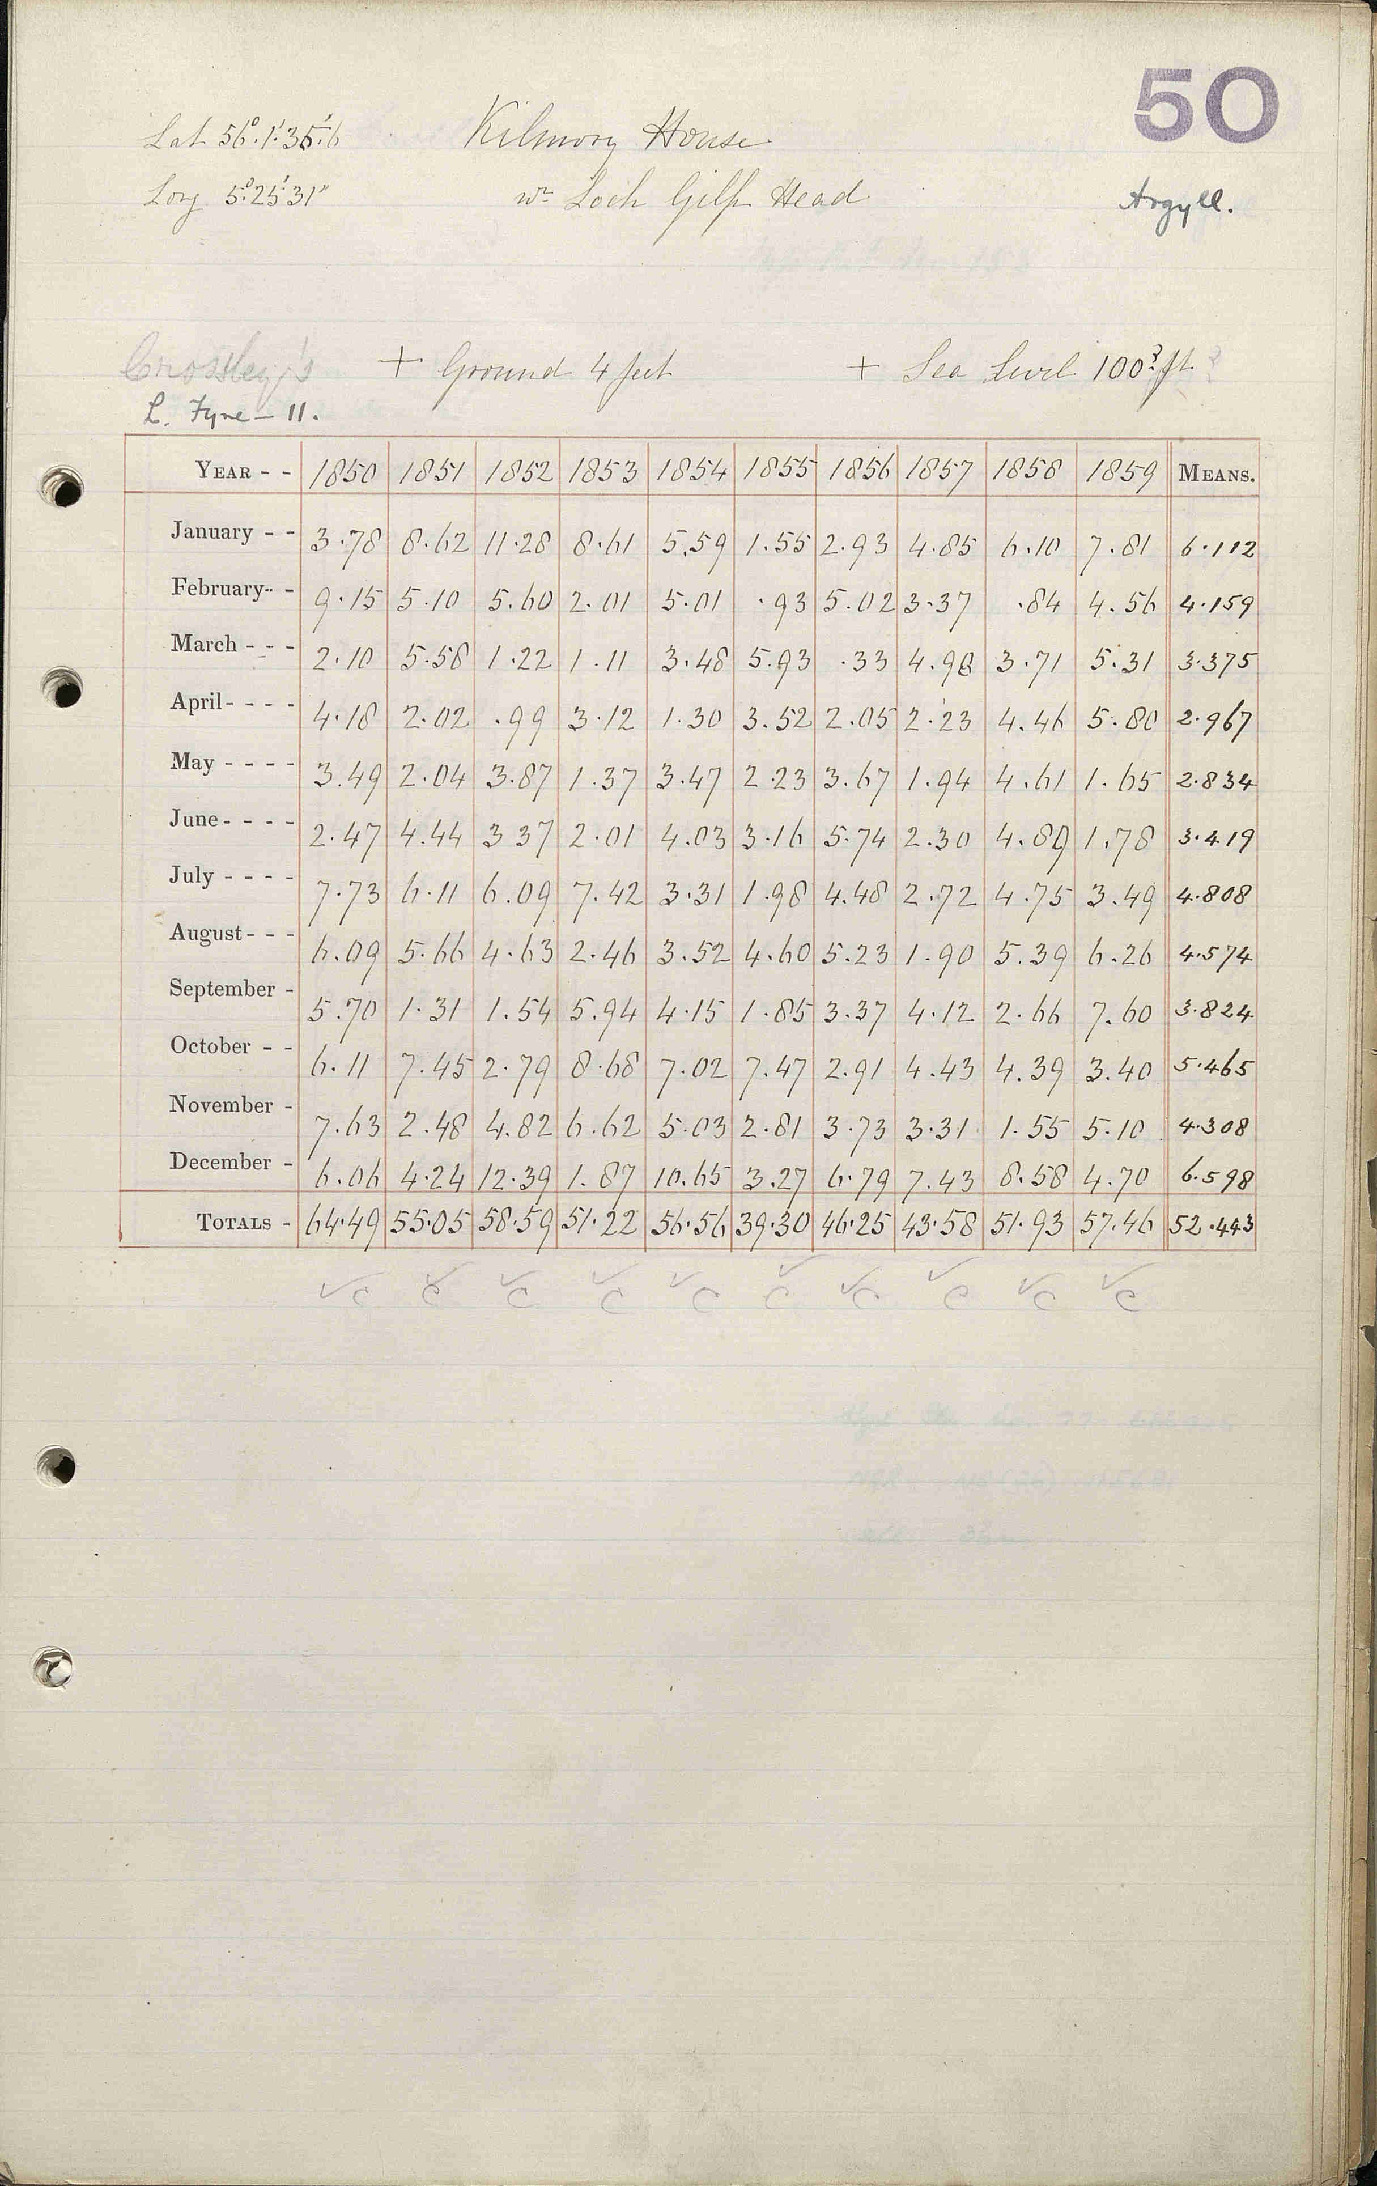 50
Lat 56°.1'.35".6 Kilmory House
Long 5°.25'.31" nr Loch Gilp Head Argyll.
Crossley's + Ground 4 feet + Sea Level 100? ft
L. Fyne - 11.
YEAR - - 1850 1851 1852 1853 1854 1855 1856 1857 1858 1859 MEANS.
January - - 3.78 8.62 11.28 8.61 5.59 1.55 2.93 4.85 6.10 7.81 6.112
February - - 9.15 5.10 5.60 2.01 5.01 .93 5.02 3.37 .84 4.56 4.159
March - - - 2.10 5.58 1.22 1.11 3.48 5.93 .33 4.98 3.71 5.31 3.375
April - - - - 4.18 2.02 .99 3.12 1.30 3.52 2.05 2.23 4.46 5.80 2.967
May - - - - 3.49 2.04 3.87 1.37 3.47 2.23 3.67 1.94 4.61 1.65 2.834
June - - - - 2.47 4.44 3.37 2.01 4.03 3.16 5.74 2.30 4.89 1.78 3.419
July - - - - 7.73 6.11 6.09 7.42 3.31 1.98 4.48 2.72 4.75 3.49 4.808
August - - - 6.09 5.66 4.63 2.46 3.52 4.60 5.23 1.90 5.39 6.26 4.574
September - 5.70 1.31 1.54 5.94 4.15 1.85 3.37 4.12 2.66 7.60 3.824
October - - 6.11 7.45 2.79 8.68 7.02 7.47 2.91 4.43 4.39 3.40 5.465
November - 7.63 2.48 4.82 6.62 5.03 2.81 3.73 3.31 1.55 5.10 4.308
December - 6.06 4.24 12.39 1.87 10.65 3.27 6.79 7.43 8.58 4.70 6.598
TOTALS - 64.49 55.05 58.59 51.22 56.56 39.30 46.25 43.58 51.93 57.46 52.443
✓c ✓c ✓c ✓c ✓c ✓c ✓c ✓c ✓c ✓c